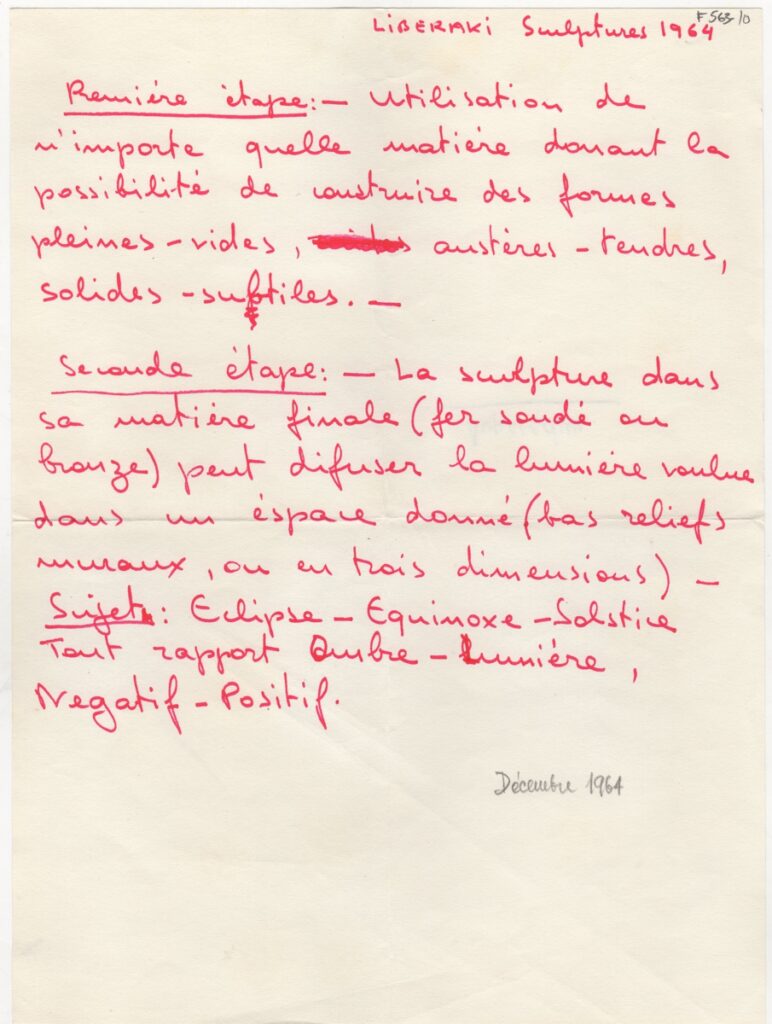 F 563/10
LIBERAKI Sculptures 1964
Première ètape:— Utilisation de
n'importe quelle matière donant la
possibilité de construire des formes
pleines-vides, austères-tendres,
solides-subtiles.—
Seconde étape:— La sculpture dans
sa matière finale (fer soudé ou
bronze) peut difuser la lumière voulue
dans un éspace donné (bas reliefs
muraux, ou en trois dimensions)—
Sujet: Eclipse-Equinoxe-Solstice
Tout rapport Ombre-Lumière,
Negatif-Positif.
Décembre 1964